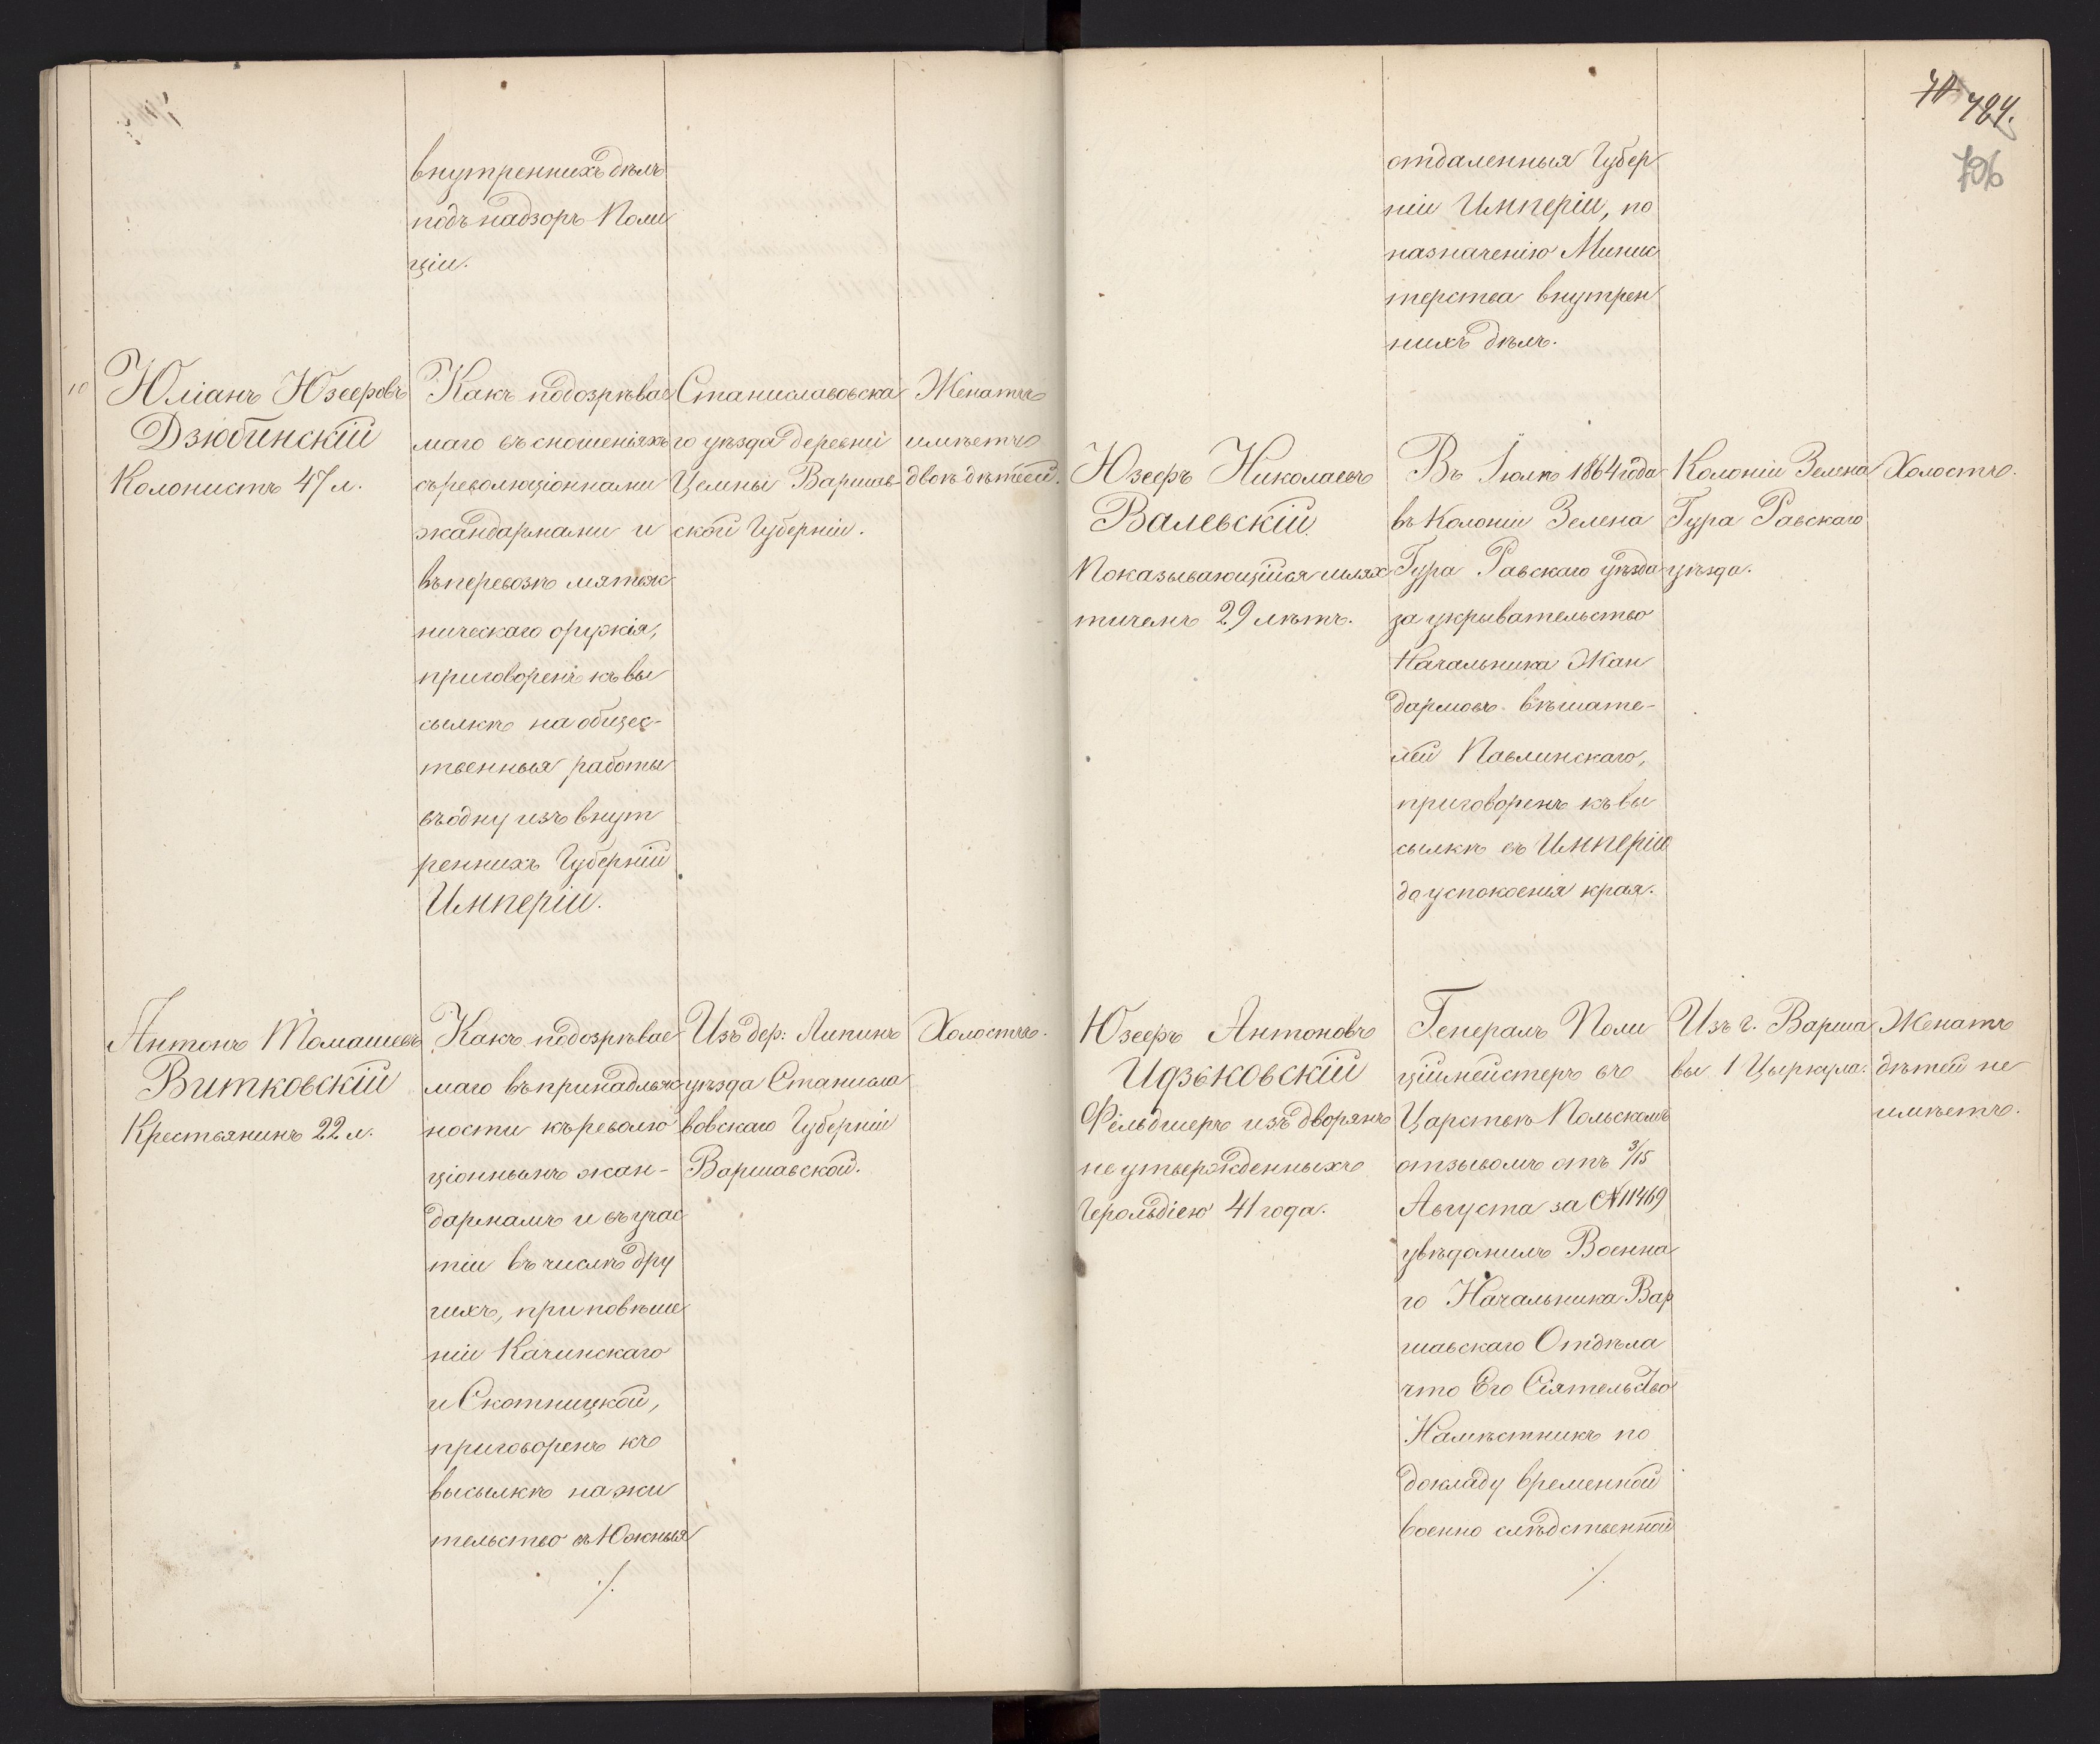 внутреннихъ дѣлъ
подъ надзоръ Поли
ціи.
10
Юліанъ Юзефовъ
Дзюбинскій
Колонистъ 47 л.
Какъ подозрѣвае
маго въ сношеніяхъ
съ революціонными
жандармами и
въ перевозкѣ мятеж
ническаго оружія,
приговоренъ къ вы
сылкѣ на общес-
твенныя работы
въ одну изъ внут
реннихъ Губерній
Имперіи.
Станиславовска
го уѣзда деревни
Цемны Варшав-
ской Губерніи.
Женатъ
имѣетъ
двоѣ дѣтей.
Антонъ Томашевъ
Витковскій
Крестьянинъ 22 л.
Какъ подозрѣвае
маго въ принадлеж
ности къ револю
ціоннымъ жан-
дармамъ и въ учас
тіи въ числѣ дру
гихъ, при повѣше
ніи Качинскаго
и Скотницкой,
приговоренъ къ
высылкѣ на жи
тельство въ Южныя
./.
Изъ дер: Липинъ
уѣзда Станисла
вовскаго Губерніи
Варшавской.
Холостъ.
40 484.
796
отдаленныя Губер
ніи Имперіи, по
назначенію Минис
терства внутрен
нихъ дѣлъ.
Юзефъ Николаевъ
Валевскій
Показывающійся шлях
тичемъ 29 лѣтъ.
Въ Іюлѣ 1864 года
въ Колоніи Зелена
Гура Равскаго уѣзда
за укрывательство
Начальника Жан
дармовъ вѣшате-
лей Павлинскаго,
приговоренъ къ вы
сылкѣ въ Имперію
до успокоенія края.
Колоніи Зелена
Гура Равскаго
уѣзда.
Холостъ.
Юзефъ Антоновъ
Идзьковскій
Фельдшеръ изъ дворянъ
неутвержденныхъ
Герольдіею 41 года.
Генералъ Поли
ціймейстеръ въ
Царствѣ Польскомъ
отзывомъ отъ 3/15
Августа за № 11469
увѣдомилъ Военна
го Начальника Вар
шавскаго Отдѣла
что Его Сіятельство
Намѣстникъ по
докладу временной
военно слѣдственной
./.
Изъ г. Варша
вы 1 Цыркула.
Женатъ
дѣтей не
имѣетъ.